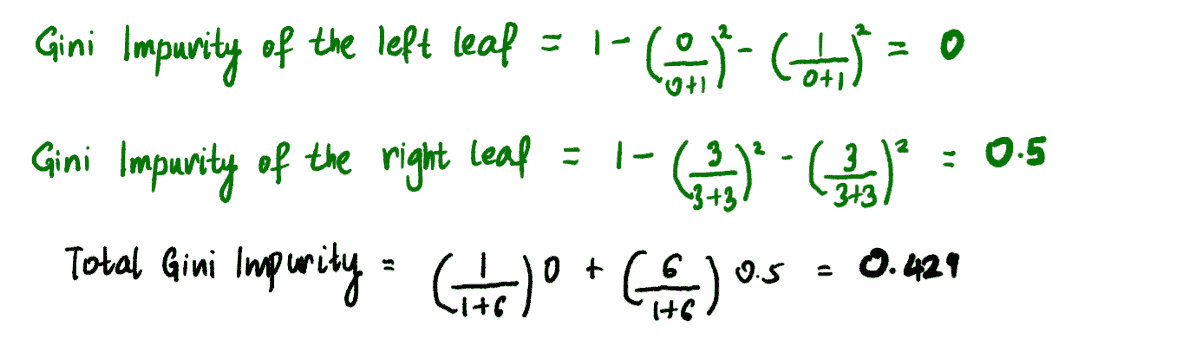 Gini Impurity of the left leaf = 1 - (0/0+1)² - (1/0+1)² = 0
Gini Impurity of the right leaf = 1 - (3/3+3)² - (3/3+3)² = 0.5
Total Gini Impurity = (1/1+6) 0 + (6/1+6) 0.5 = 0.429